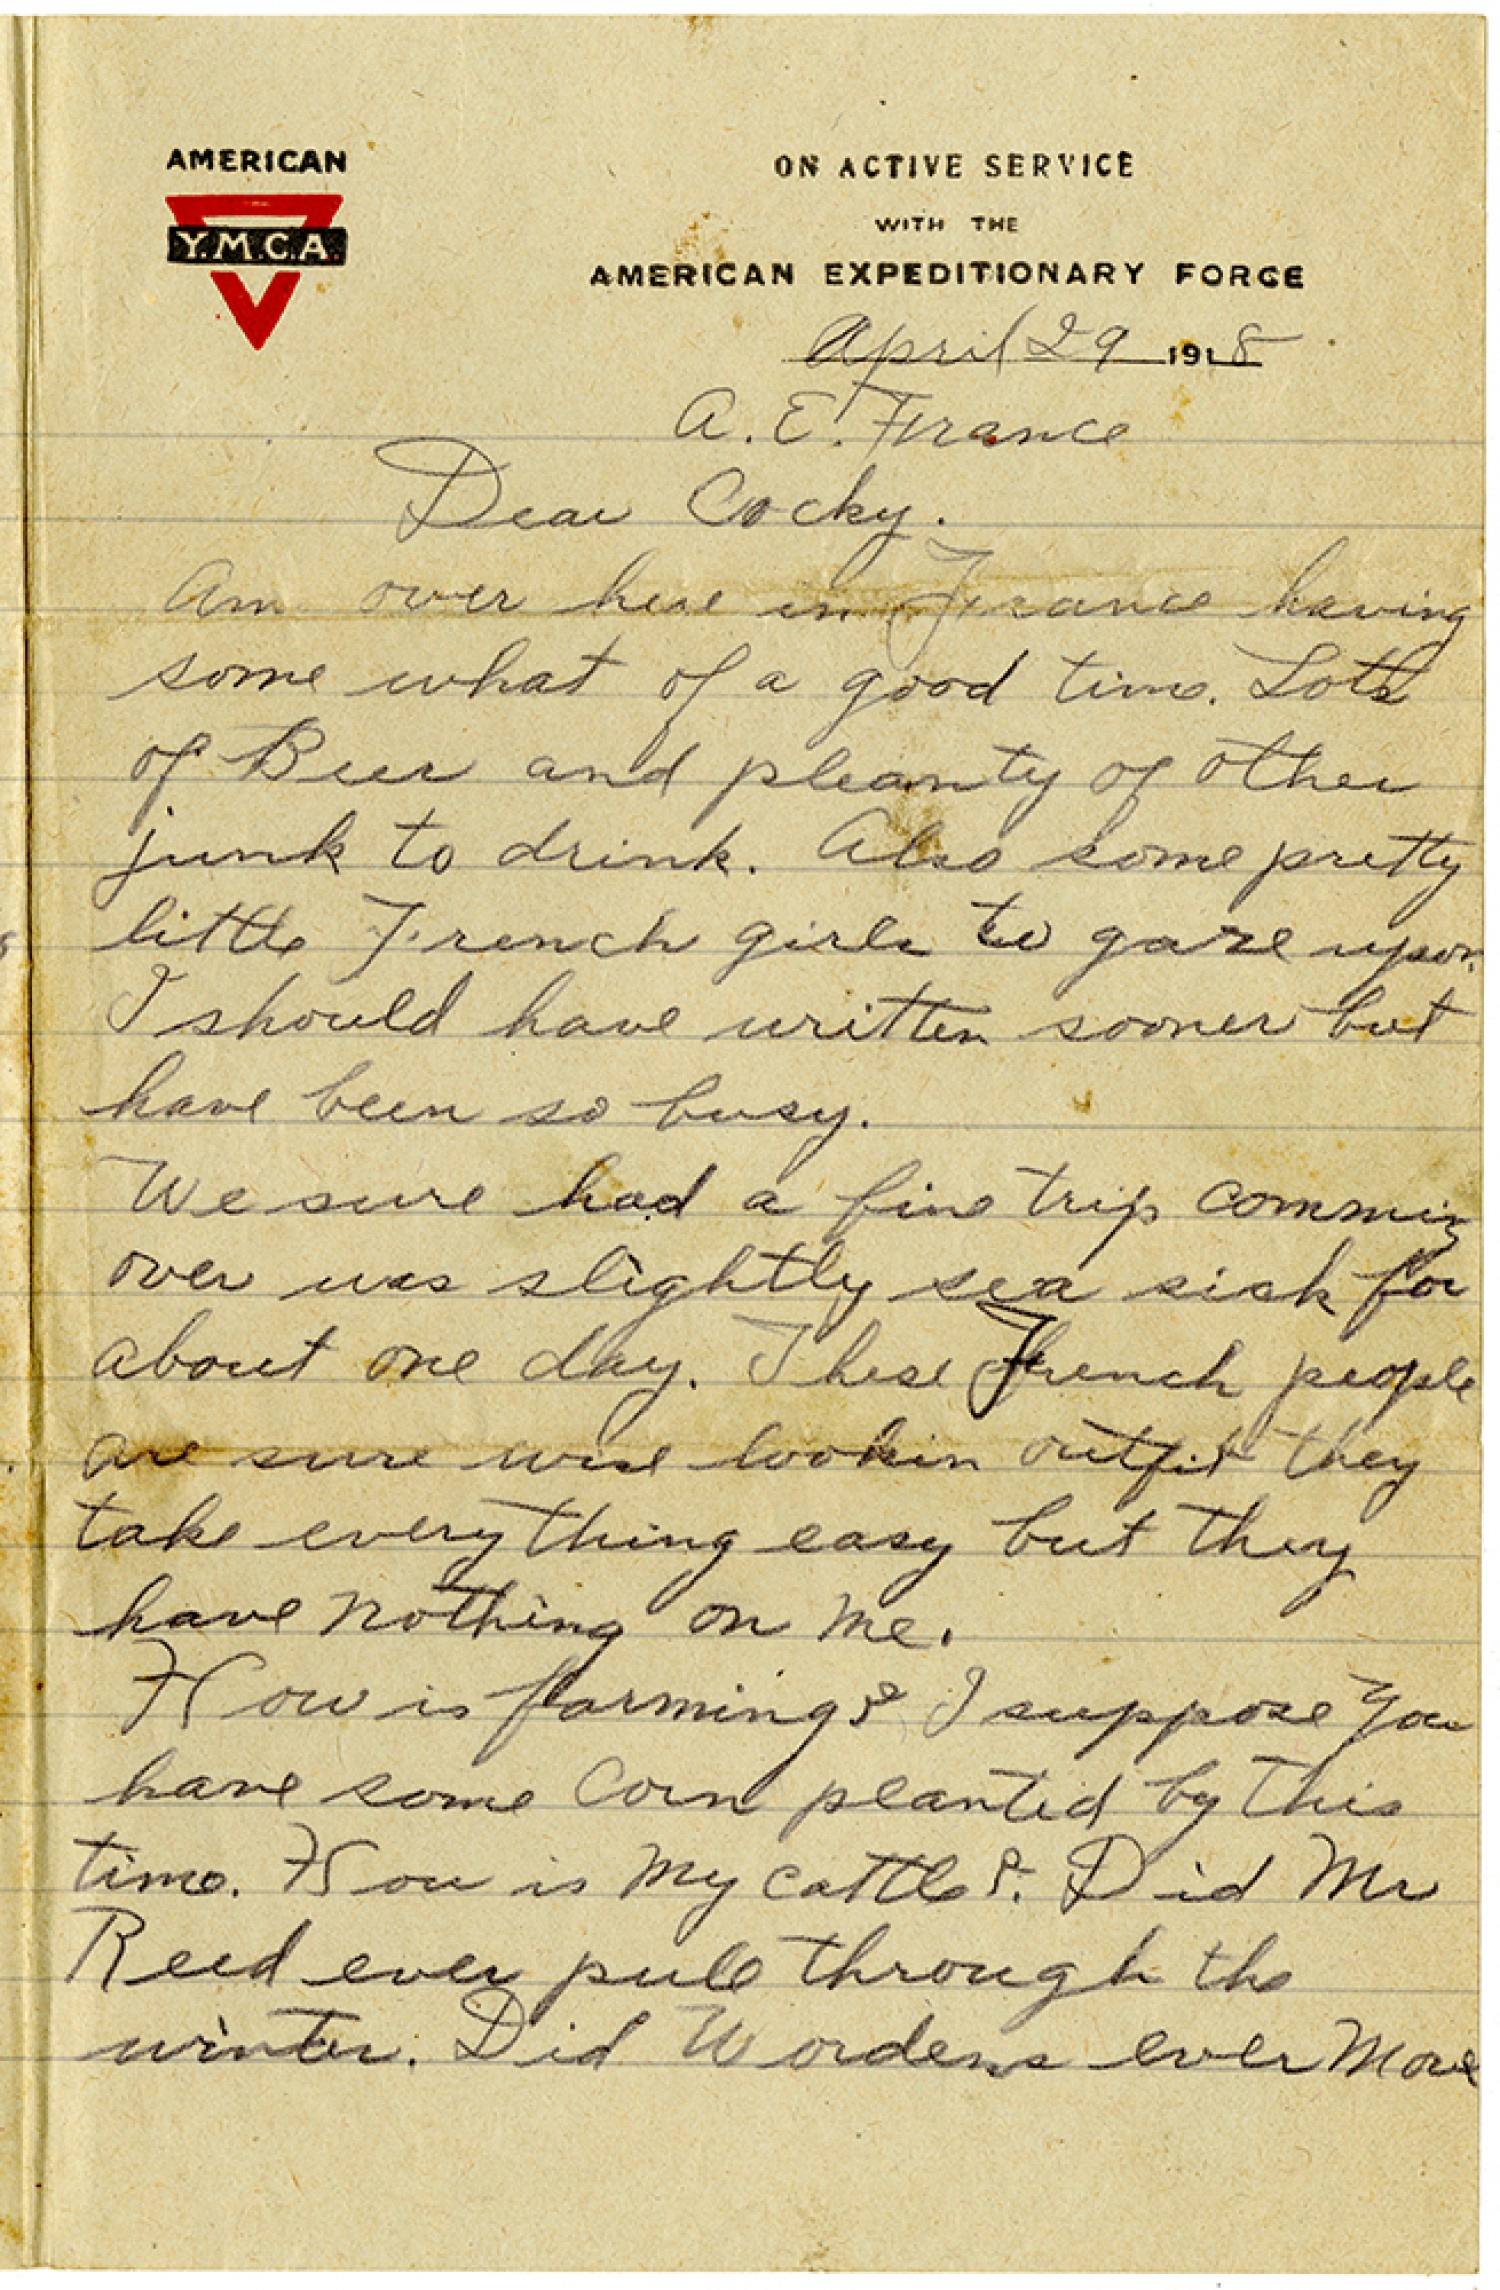 AMERICAN
Y.M.C.A.
ON ACTIVE SERVICE
WITH THE
AMERICAN EXPEDITIONARY FORCE
April 29 1918
A. E. France
Dear Cocky.
Am over here in France having
some what of a good time. Lots
of Beer and pleanty of other
junk to drink. Also some pretty
little French girls to gaze upon.
I should have written sooner but
have been so busy.
We sure had a fine trip comming
over was slightly sea sick for
about one day. These French people
are sure wise lookin outfit they
take everything easy but they
have nothing on me.
How is farming? I suppose you
have some corn planted by this
time. How is my cattle?. Did Mr
Reed ever pull through the
winter. Did Wordens ever move